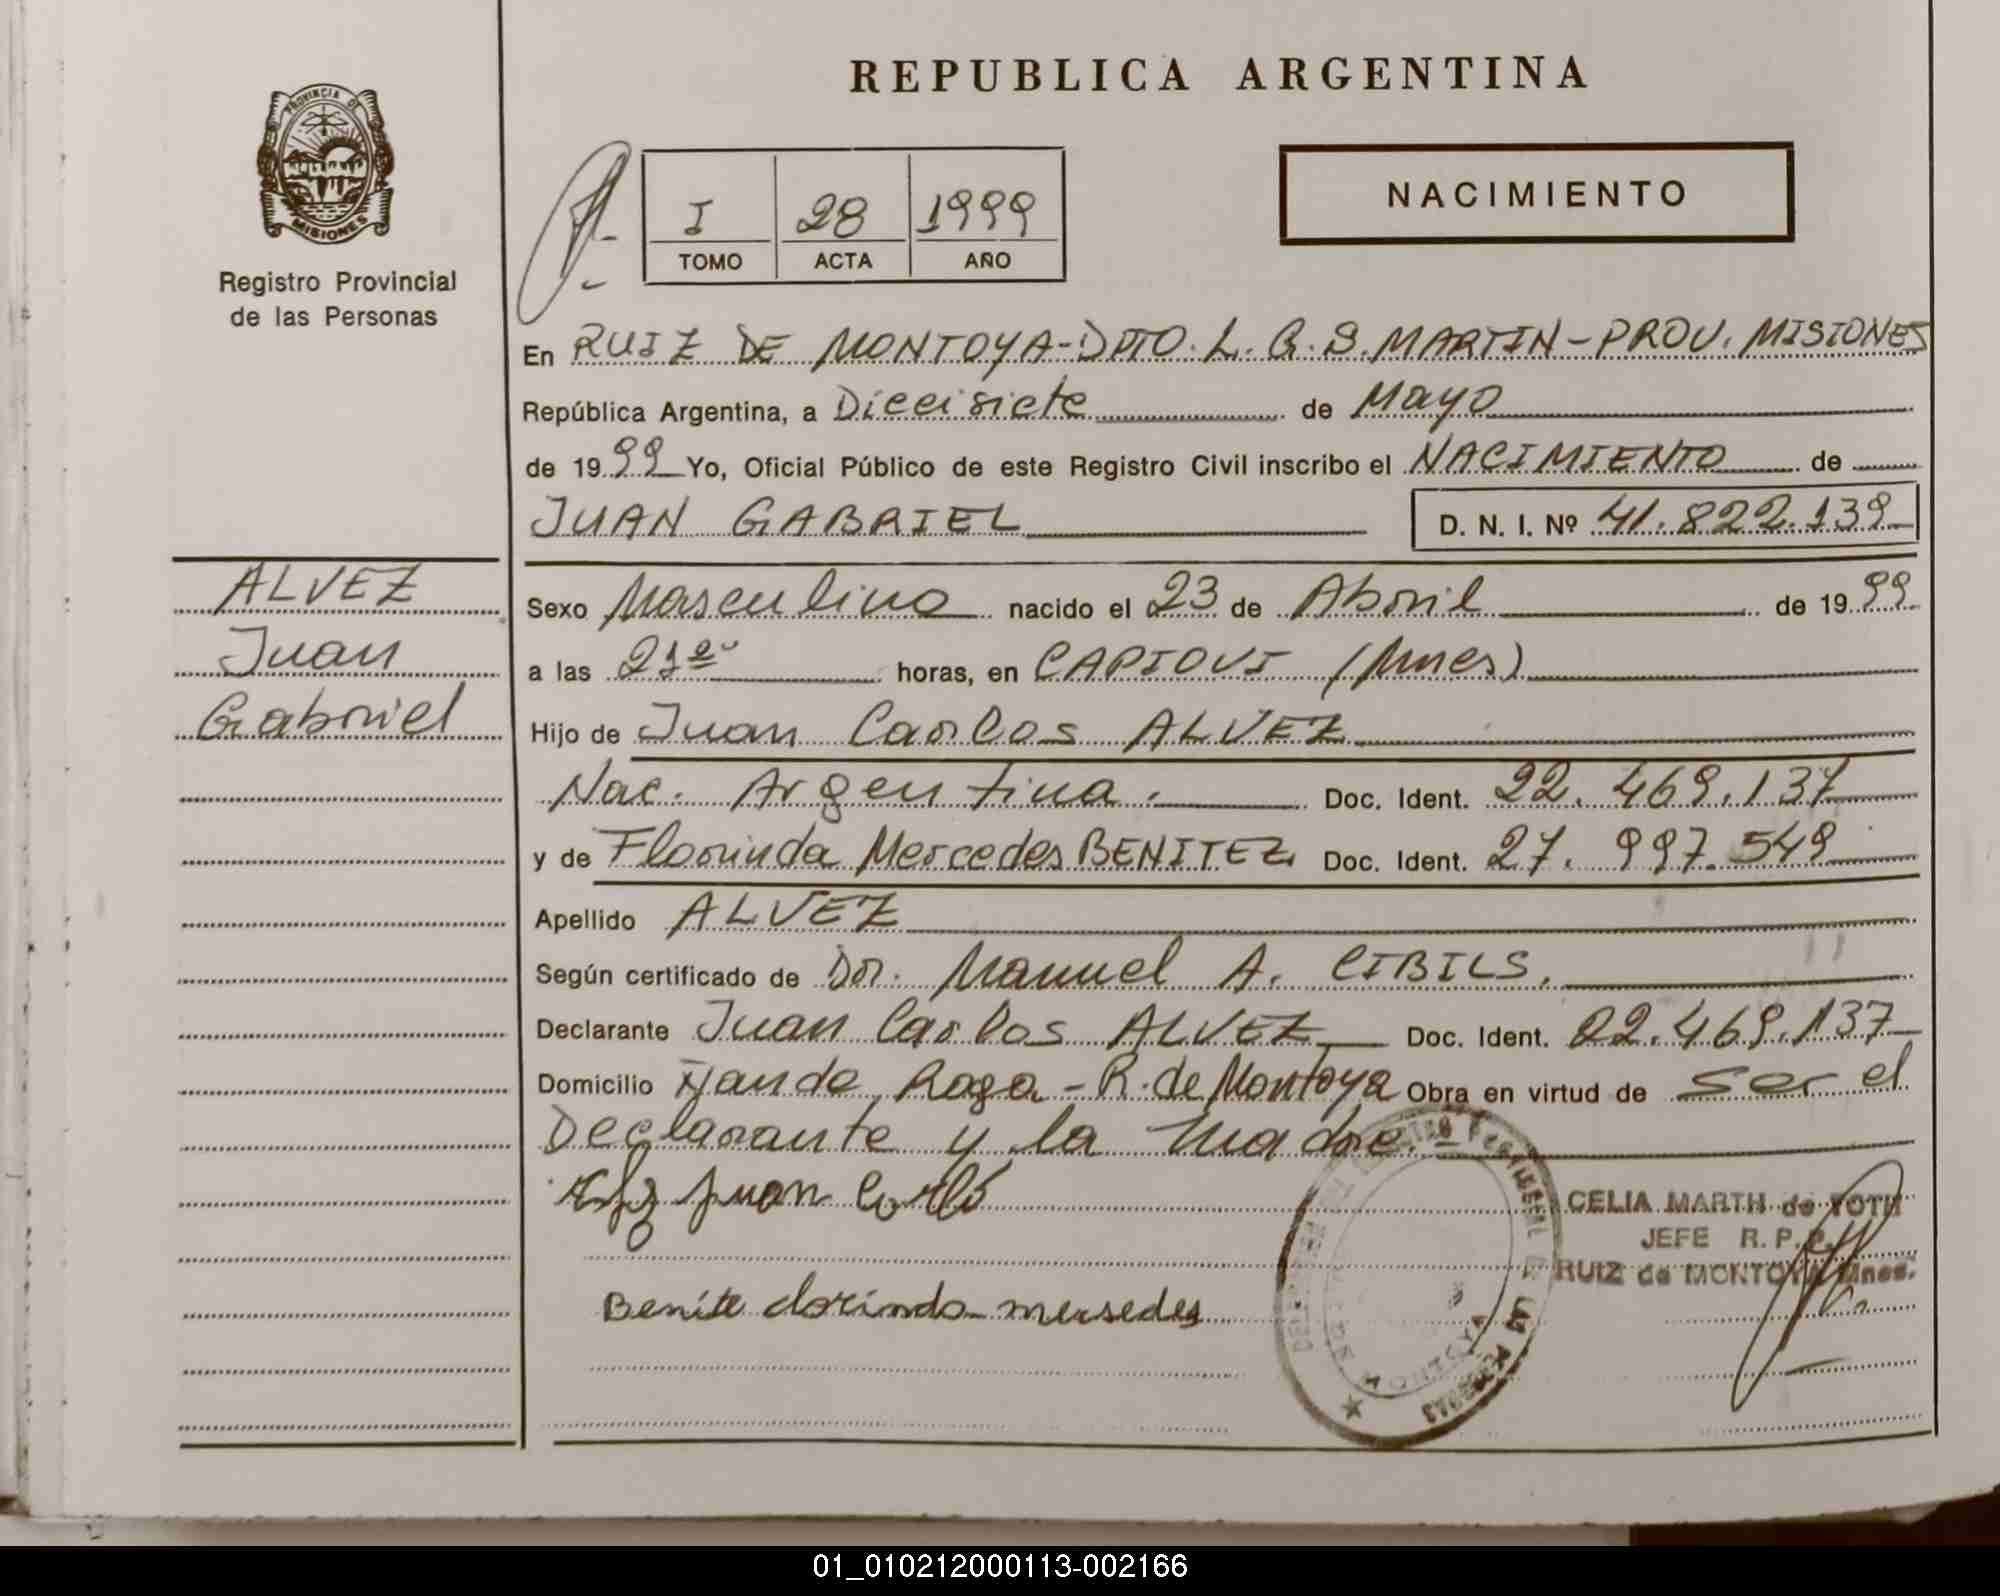 REPUBLICA ARGENTINA
PROVINCIA DE
MISIONES
Registro Provincial
de las Personas
I 28 1999
TOMO ACTA AÑO
NACIMIENTO
En RUIZ DE MONTOYA-DPTO. L. G. S. MARTIN-PROV. MISIONES
República Argentina, a Diecisiete de Mayo
de 1999 Yo, Oficial Público de este Registro Civil inscribo el NACIMIENTO de
JUAN GABRIEL D. N. I. Nº 41.822.139
ALVEZ
Juan
Gabriel
Sexo Masculino nacido el 23 de Abril de 1999
a las 21 horas, en CAPIOVI (Mnes)
Hijo de Juan Carlos ALVEZ
Nac. Argentina. Doc. Ident. 22.469.137
y de Florinda Mercedes BENITEZ Doc. Ident. 27.997.549
Apellido ALVEZ
Según certificado de Dr. Manuel A. CIBILS.
Declarante Juan Carlos ALVEZ Doc. Ident. 22.469.137
Domicilio - R. de Montoya Obra en virtud de Ser el
Declarante y la Madre.
Juan
CELIA MARTH de YOTH
JEFE R. P. P.
RUIZ de MONTOYA Mnes.
Benite dorinda mersedes
01_010212000113-002166